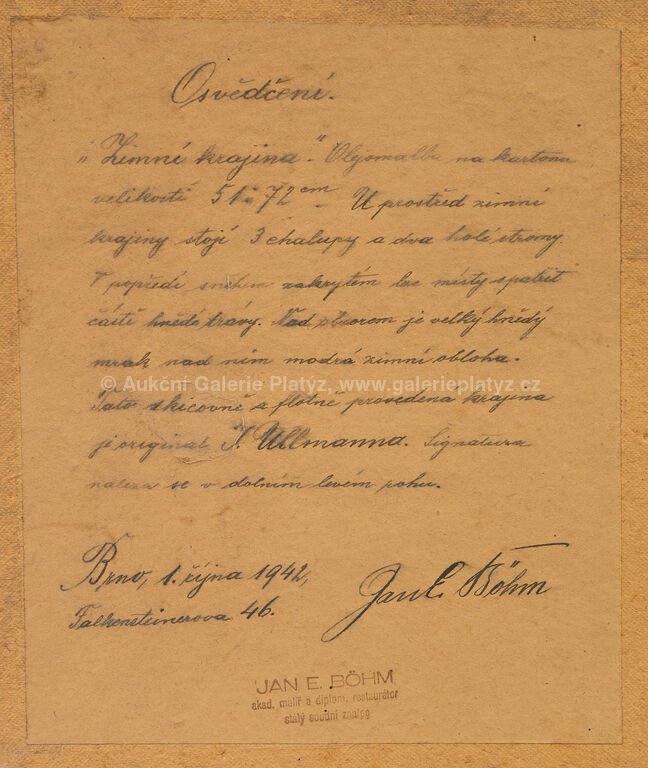 Osvědčení.
"Zimní krajina." Olejomalba na kartonu
velikosti 51 : 72 cm – U prostřed zimní
krajiny stojí 3 chalupy a dva holé stromy.
V popředí sněhem zakrytém lze místy spatřit
části hnědé trávy. Nad obzorem je velký hnědý
mrak nad ním modrá zimní obloha.
© Aukční Galerie Platýz, www.galerieplatyz.cz
Tato skicovně a flotně provedená krajina
je originál I. Ullmanna. Signatura
naleza se v dolním levém rohu.
Brno, 1. října 1942,
Falkensteinerova 46.
Jan E. Böhm
JAN E. BÖHM
akad. malíř a diplom. restaurátor
stálý soudní znalec